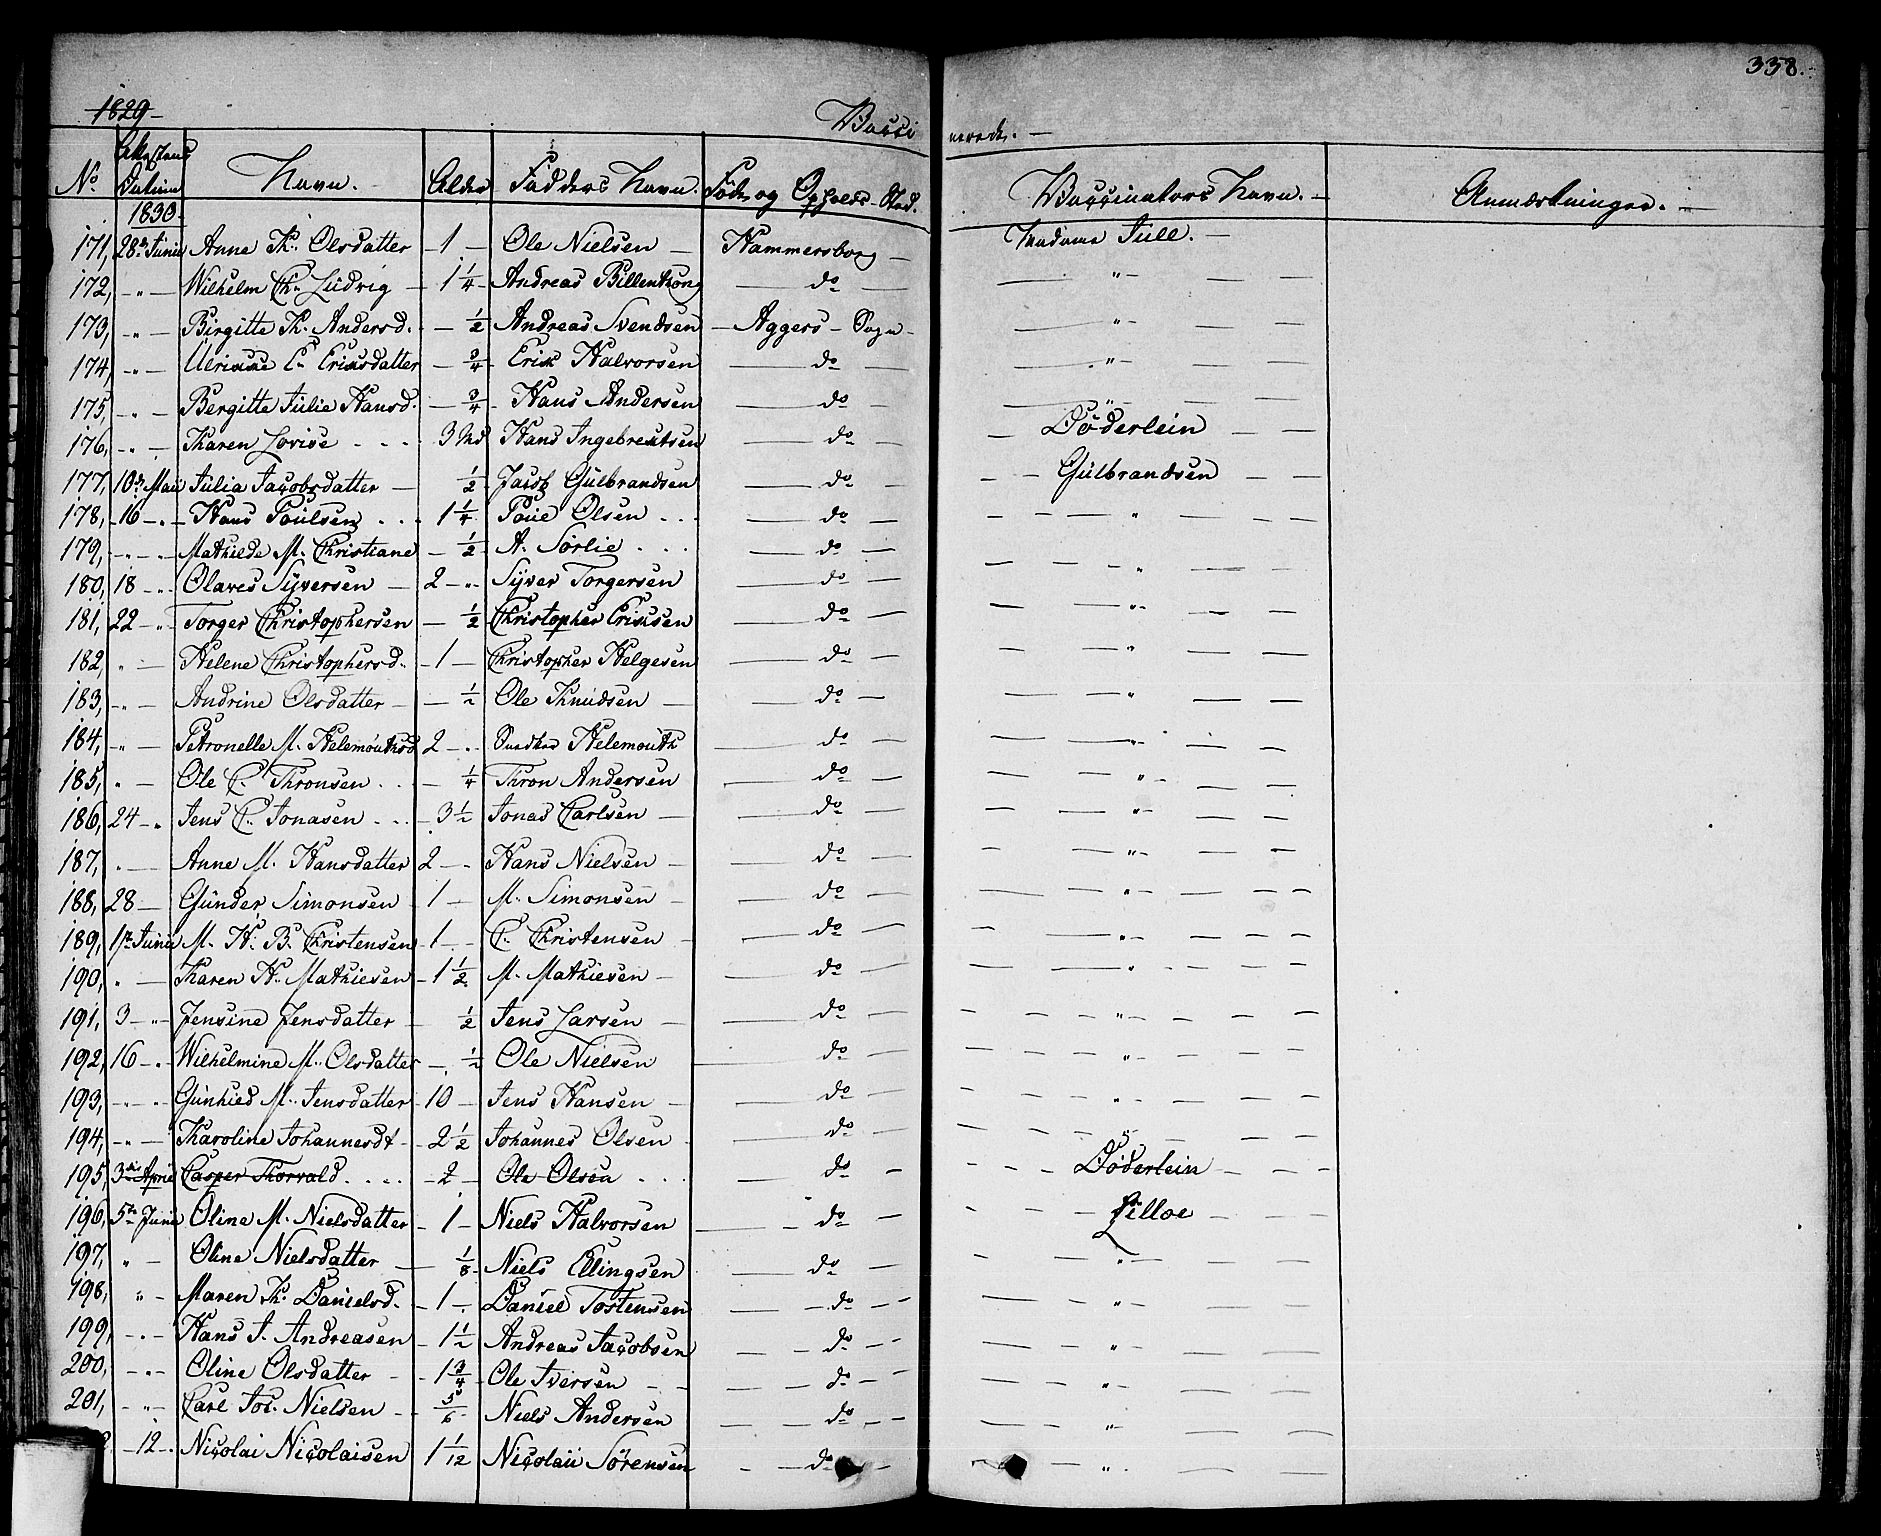 338.
1829 Vacci nerede.
No Attestens Datum Navn. Alder Fadders Navn. Føde og Opholds-Sted. Vaccinators Navn. Anmærkninger.
1830
171, 28de Junii Anne K. Olsdatter 1 Ole Nielsen Hammersborg Madame Jull.
172, " Wilhelm Chr. Ludvig 1 1/4 Andreas Billenkong do "
173, " Birgitte K. Andersd. 1/2 Andreas Svendsen Aggers Sogn "
174, " Ulrikke E. Eriksdatter 3/4 Erik Halvorsen do "
175, " Bergitte Julie Hansd. 3/4 Hans Andersen do "
176, " Karen Lovise 3 Md Hans Ingebrektsen do Döderlein
177, 10de Maii Julia Jacobsdatter 1/2 Jacob Gulbrandsen do Gulbrandsen
178, 16 " Hans Poulsen 1 1/4 Poul Olsen do "
179, " Mathilde M. Christiane 1/2 A. Sørlie do "
180, 18 " Olaves Syversen 2 " Syver Torgersen do "
181, 22 " Torger Christophersen 1/2 Christopher Eriksen do "
182, " Helene Christophersd. 1 Christopher Helgesen do "
183, " Andrine Olsdatter 1/2 Ole Knudsen do "
184, " Petronelle M. Helemouthsd 2 " Helemouth do "
185, " Ole C. Thronsen 1/4 Thron Andersen do "
186, 24 " Jens C. Jonasen 3 1/2 Jonas Carlsen do "
187, " Anne M. Hansdatter 2 " Hans Nielsen do "
188, 28 Gunder Simonsen 1 M. Simonsen do "
189, 1ste Junii M. H. B. Christensen 1 C. Christensen do "
190, " Karen H. Mathiesen 1 1/2 M. Mathiesen do "
191, 3 " Jensine Jensdatter 1/2 Jens Larsen do "
192, 16 " Wilhelmine M. Olsdatter 1/2 Ole Nielsen do "
193, " Gunhild M. Jensdatter 10 Jens Hansen do "
194, " Karoline Johannesdt 2 1/2 Johannes Olsen do "
195, 3die April Casper Thorvald 2 Ole Olsen do Döderlein
196, 5te Junii Oline M. Nielsdatter 1 Niels Halvorsen do Lilloe
197, " Oline Nielsdatter 1/8 Niels Ellingsen do "
198, " Maren K. Danielsd. 1 Daniel Tostensen do "
199, " Hans J. Andreasen 1 1/2 Andreas Jacobsen do "
200, " Oline Olsdatter 1 3/4 Ole Iversen do "
201, " Carl Jos. Nielsen 5/6 Niels Andersen do "
12 Nicolai Nicolaisen 1 1/12 Nicolaii Sörensen do "